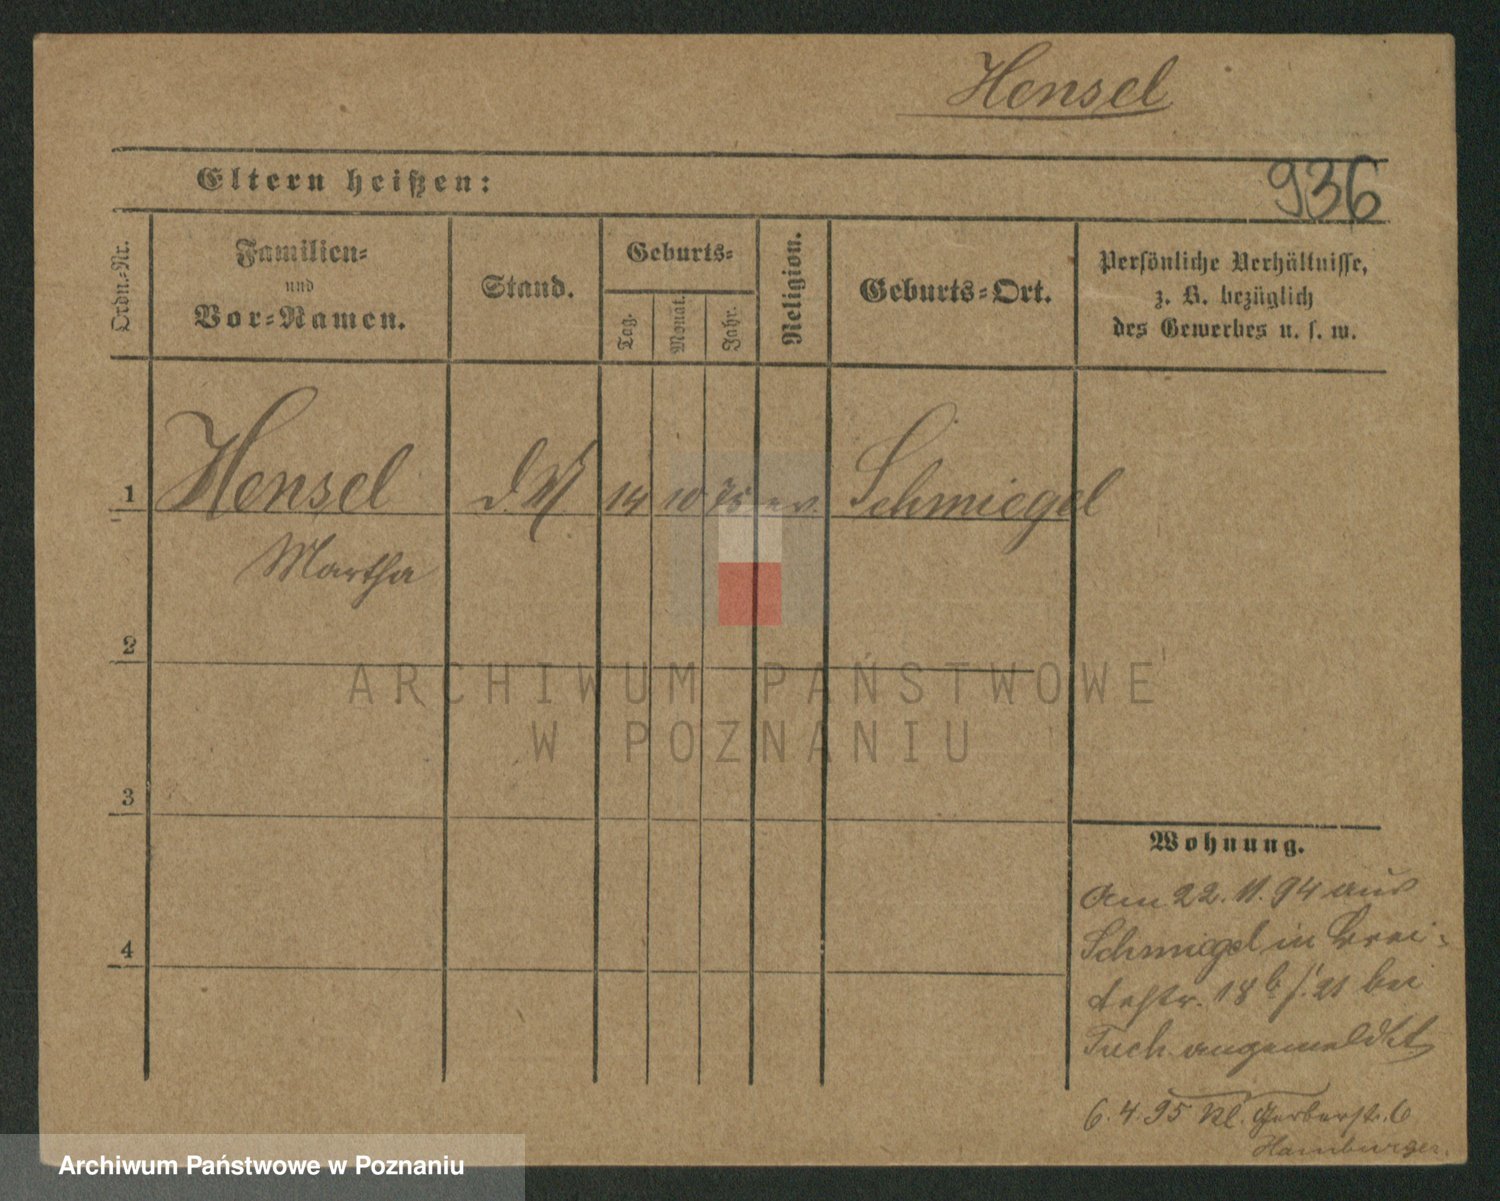 Hensel
Eltern heißen:
936
Ordn.-Nr.
Familien-
und
Vor-Namen.
Stand.
Geburts-
Tag.
Monat.
Jahr.
Religion.
Geburts-Ort.
Persönliche Verhältnisse,
z. B. bezüglich
des Gewerbes u. s. w.
1
Hensel
d. M
14
10
75
ev.
Schmiegel
Martha
2
ARCHIWUM PAŃSTWOWE
W POZNANIU
3
Wohnung.
Am 22. 11. 94 aus
Schmiegel in Brei-
testr. 18 b
21 bei
angemeldet
4
6. 4. 95 Kl. Gerberstr. 6
Hamburger.
Archiwum Państwowe w Poznaniu